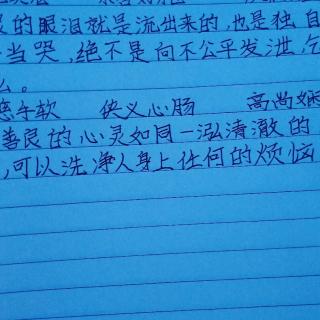 的眼泪就是流出来的,也是独自
当哭,绝不是向不公平发泄,
么。
手软 侠义心肠 高尚娴
善良的心灵如同一泓清澈的
,可以洗净人身上任何的烦恼